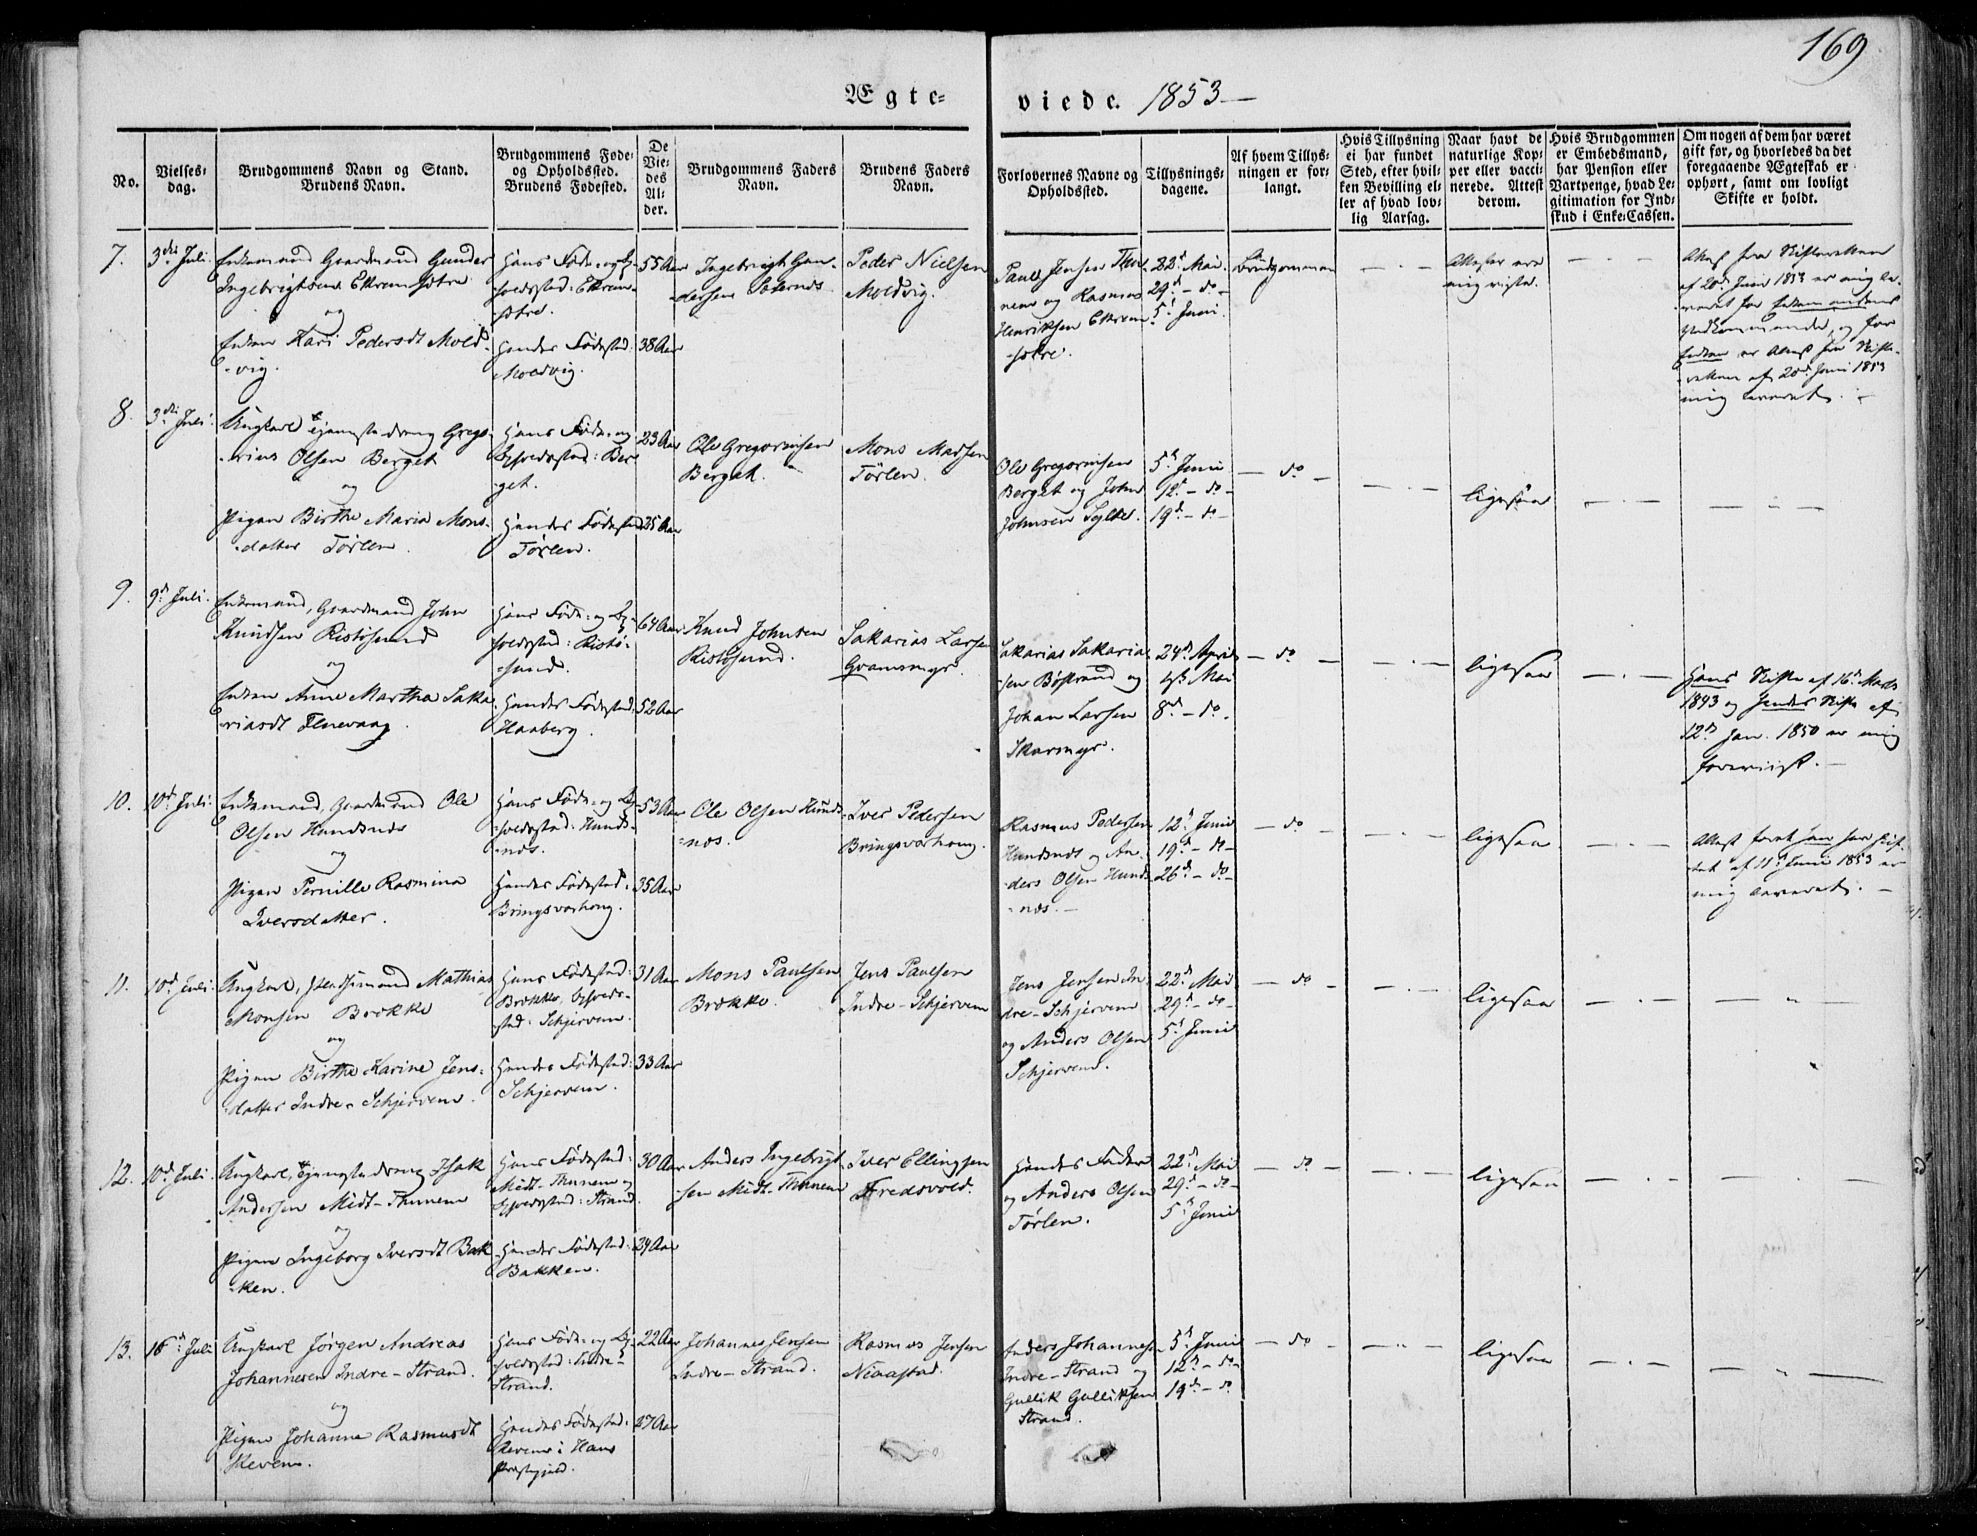 169
Ægte-
viede. 1853 —
No.
Vielses-
dag.
Brudgommens Navn og Stand.
Brudens Navn.
Brudgommens Føde-
og Opholdssted.
Brudens Fødested.
De
Vie-
des
Al-
der.
Brudgommens Faders
Navn.
Brudens Faders
Navn.
Forlovernes Navne og
Opholdssted.
Tillysnings-
dagene.
Af hvem Tillys-
ningen er for-
langt.
Hvis Tillysning
ei har fundet
Sted, efter hvil-
ken Bevilling el-
ler af hvad lov-
lig Aarsag.
Naar havt de
naturlige Kop-
per eller vacci-
nerede. Attest
derom.
Hvis Brudgommen
er Embedsmand,
har Pension eller
Vartpenge, hvad Le-
gitimation for Ind-
skud i Enke-Cassen.
Om nogen af dem har været
gift før, og hvorledes da det
foregaaende Ægteskab er
ophørt, samt om lovligt
Skifte er holdt.
7.
3die Juli
Enkemand Gaardmand Gunder
Ingebrigtsen
og
Enken Kari Pedersdt Mold-
-vig.
Hans Føde- og Op-
holdssted:
Hendes Fødested:
Moldvig.
55 Aar
38 Aar
Ingebrigt Gun-
dersen
Peder Nielsen
Moldvig.
Paul Jensen
og Rasmus
Henriksen
22d Mai
29d — do —
5t Juni.
Brudgommen
— . —
Attester ere
mig viiste.
— . —
Attest fra Skifteretten
af 20d Juni 1853 er mig le-
veret for
og for
Enken er Attest fra Skifte-
retten af 20d Juni 1853
mig leveret. —
8.
3die Juli
Ungkarl Tjenestedreng Grego-
-rius Olsen Berget
og
Pigen Birthe Maria Mons-
datter Tørlen.
Hans Føde- og
Opholdssted: Ber-
-get.
Hendes Fødested
Tørlen.
23 Aar
25 Aar
Ole Gregoriusen
Berget.
Mons Madsen
Tørlen.
Ole Gregoriusen
Berget og John
Johnsen Sylte.
5t Juni
12t — do —
19d — do —
— do —
— . —
ligesaa
— . —
— " —
9.
9d Juli.
Enkemand, Gaardmand John
Knudsen Ristøsund
og
Enken Anne Martha Saka-
riasdt Flnevaag.
Hans Føde- og Op-
holdssted: Ristø-
-sund.
Hendes Fødested:
Haaberg.
64 Aar
52 Aar
Knud Johnsen
Ristøsund.
Sakarias Larsen
Gramsmyr.
Sakarias Sakaria-
sen Bøstrand og
Johan Larsen
Skarmyr.
24d April
1st Mai
8d — do —
— do —
— . —
ligesaa
— . —
Hans Skifte af 16d Marts
1843 og Hendes Skifte af
12t Jan. 1850 er mig
foreviist. —
10.
10d Juli.
Enkemand, Gaardmand Ole
Olsen Hundsnæs
og
Pigen Pernille Rasmina
Iversdatter.
Hans Føde- og Op-
holdssted: Hunds-
-næs.
Hendes Fødested:
Bringsvorhoug.
53 Aar
35 Aar
Ole Olsen Hunds-
-næs.
Iver Pedersen
Bringsvorhoug.
Rasmus Pedersen
Hundsnæs og An-
ders Olsen Hunds-
-næs. —
12t Juni
19d — do —
26d — do —
— do —
— . —
ligesaa
— . —
Attest
af 11t Juni 1853 er
mig leveret. —
11.
10d Juli.
Ungkarl, Huusmand Mathias
Monsen Brokke
og
Pigen Birthe Karine Jens-
datter Indre-Schjervem.
Hans Fødested:
Brokke, Opholds-
sted: Schjervem.
Hendes Fødested:
Schjervem.
31 Aar
33 Aar
Mons Paulsen
Brokke.
Jens Paulsen
Indre-Schjervem
Jens Jensen In-
dre-Schjervem
og Anders Olsen
Schjervem.
22d Mai
29d — do —
5t Juni
— do —
— . —
ligesaa
— . —
— " —
12.
10d Juli
Ungkarl, Tjenestedreng Isak
Andersen Midt-Thunem
og
Pigen Ingeborg Iversdt Bak-
-ken.
Hans Fødested:
Midt-Thunem og
Opholdssted: Strand.
Hendes Fødested:
Bakken.
30 Aar
24 Aar
Anders Ingebrigt-
sen Midt-Thunem
Iver Ellingsen
Fredsvold.
Hendes Fader
og Anders Olsen
Tørlen.
22d Mai
29d — do —
5t Juni
— do —
— . —
ligesaa
— . —
— . —
13.
16d Juli
Ungkarl Jørgen Andreas
Johannesen Indre-Strand.
og
Pigen Johanne Rasmusdt
Reven.
Hans Føde- og Op-
holdssted: Indre-
Strand.
Hendes Fødested:
i Hans
Præstegjeld.
22 Aar
27 Aar
Johannes Jensen
Indre-Strand.
Rasmus Jensen
Niaastad.
Anders Johannesen
Indre-Strand og
Gullik Gulliksen
Strand.
5t Juni
12t — do —
19d — do
— do —
— " —
ligesaa
— . —
— " —